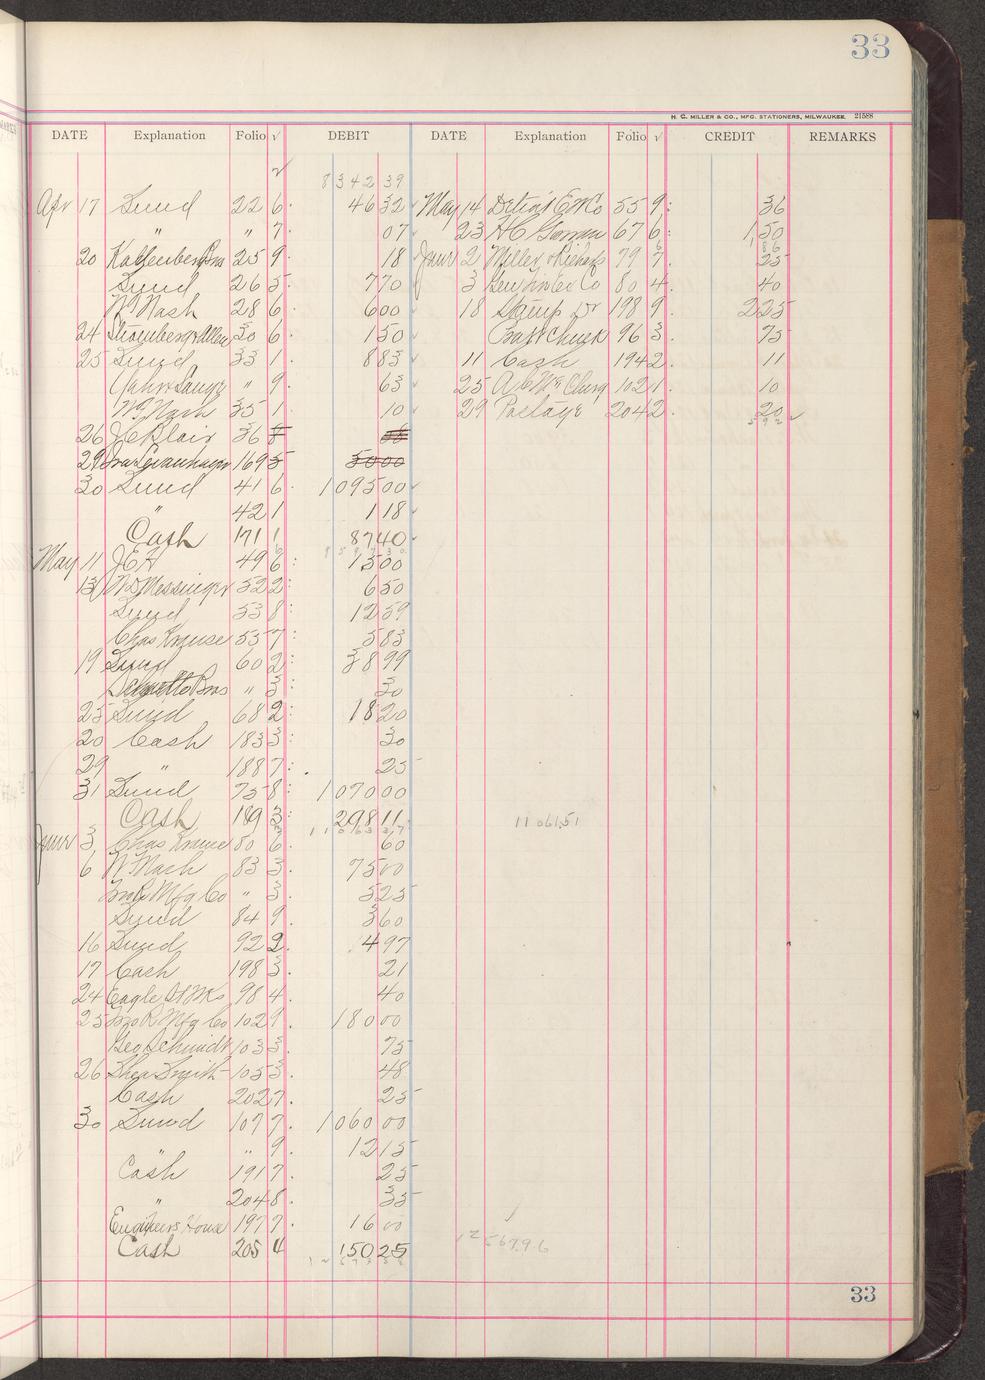 33
H. G. MILLER & CO., MFG. STATIONERS, MILWAUKEE. 21588
DATE Explanation Folio √ DEBIT DATE Explanation Folio √ CREDIT REMARKS
√ 8 3 4 2 3 9
Apr 17 Sund 22 6 46 32 May 14 Detroit E W Co 55 9 36
" " 7 07 23 H C 67 6 1 50
20 Bros 25 9 18 June 2 Miller & 79 7 25
Sund 26 5 7 70 3 Gen Co 80 4 40
W Nash 28 6 6 00 18 Stamp 198 9 2 25
24 Stromberg Allen 30 6 1 50 96 3 75
25 Sund 33 1 8 83 11 Cash 194 2 11
" 9 63 25 A C McClurg 102 1 10
W Nash 35 1 10 29 Postage 204 2 20
5 9 2
26 J C Blair 36 8
29 169 5 50 00
30 Sund 41 6 1095 00
" 42 1 1 18
Cash 171 1 87 40
May 11 J E H 49 6 15 00
13 W D Messinger 52 2 6 50
Sund 53 8 12 59
Chas Krause 55 7 5 83
19 Sund 60 2 38 99
Bros " 3 30
25 Sund 68 2 18 20
20 Cash 183 3 30
29 " 188 7 25
31 Sund 75 8 1070 00
Cash 189 3 298 11 11 061.51
June 3 Chas Krause 80 6 60
6 W Nash 83 3 75 00
Mfg Co " 3 5 25
Sund 84 9 3 60
16 Sund 92 2 4 97
17 Cash 198 3 21
24 Eagle 98 4 40
25 Mfg Co 102 9 180 00
Geo Schmidt 103 3 75
26 Shea Smith 105 3 48
Cash 202 7 25
30 Sund 107 7 1060 00
" " 9 12 15
Cash 191 7 25
" 204 8 35
Engineers House 197 7 16 00
Cash 205 4 150 25 12 567.96
33